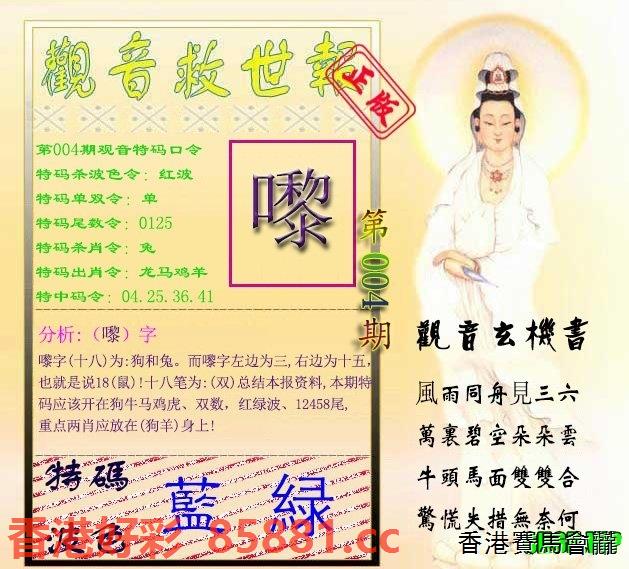 觀音救世報
正版
第004期观音特码口令
特码杀波色令: 红波
特码单双令: 单
特码尾数令: 0125
特码杀肖令: 兔
特码出肖令: 龙马鸡羊
特中码令: 04.25.36.41
嚟
第004期
分析:（嚟）字
嚟字(十八)为:狗和兔。而嚟字左边为三,右边为十五,
也就是说18(鼠)!十八笔为:(双)总结本报资料,本期特
码应该开在狗牛马鸡虎、双数，红绿波、12458尾,
重点两肖应放在(狗羊)身上!
觀音玄機書
風雨同舟見三六
萬裏碧空朵朵雲
牛頭馬面雙雙合
驚慌失措無奈何
特碼
波色
藍 緑
香港好彩 85881.cc
香港賽馬會